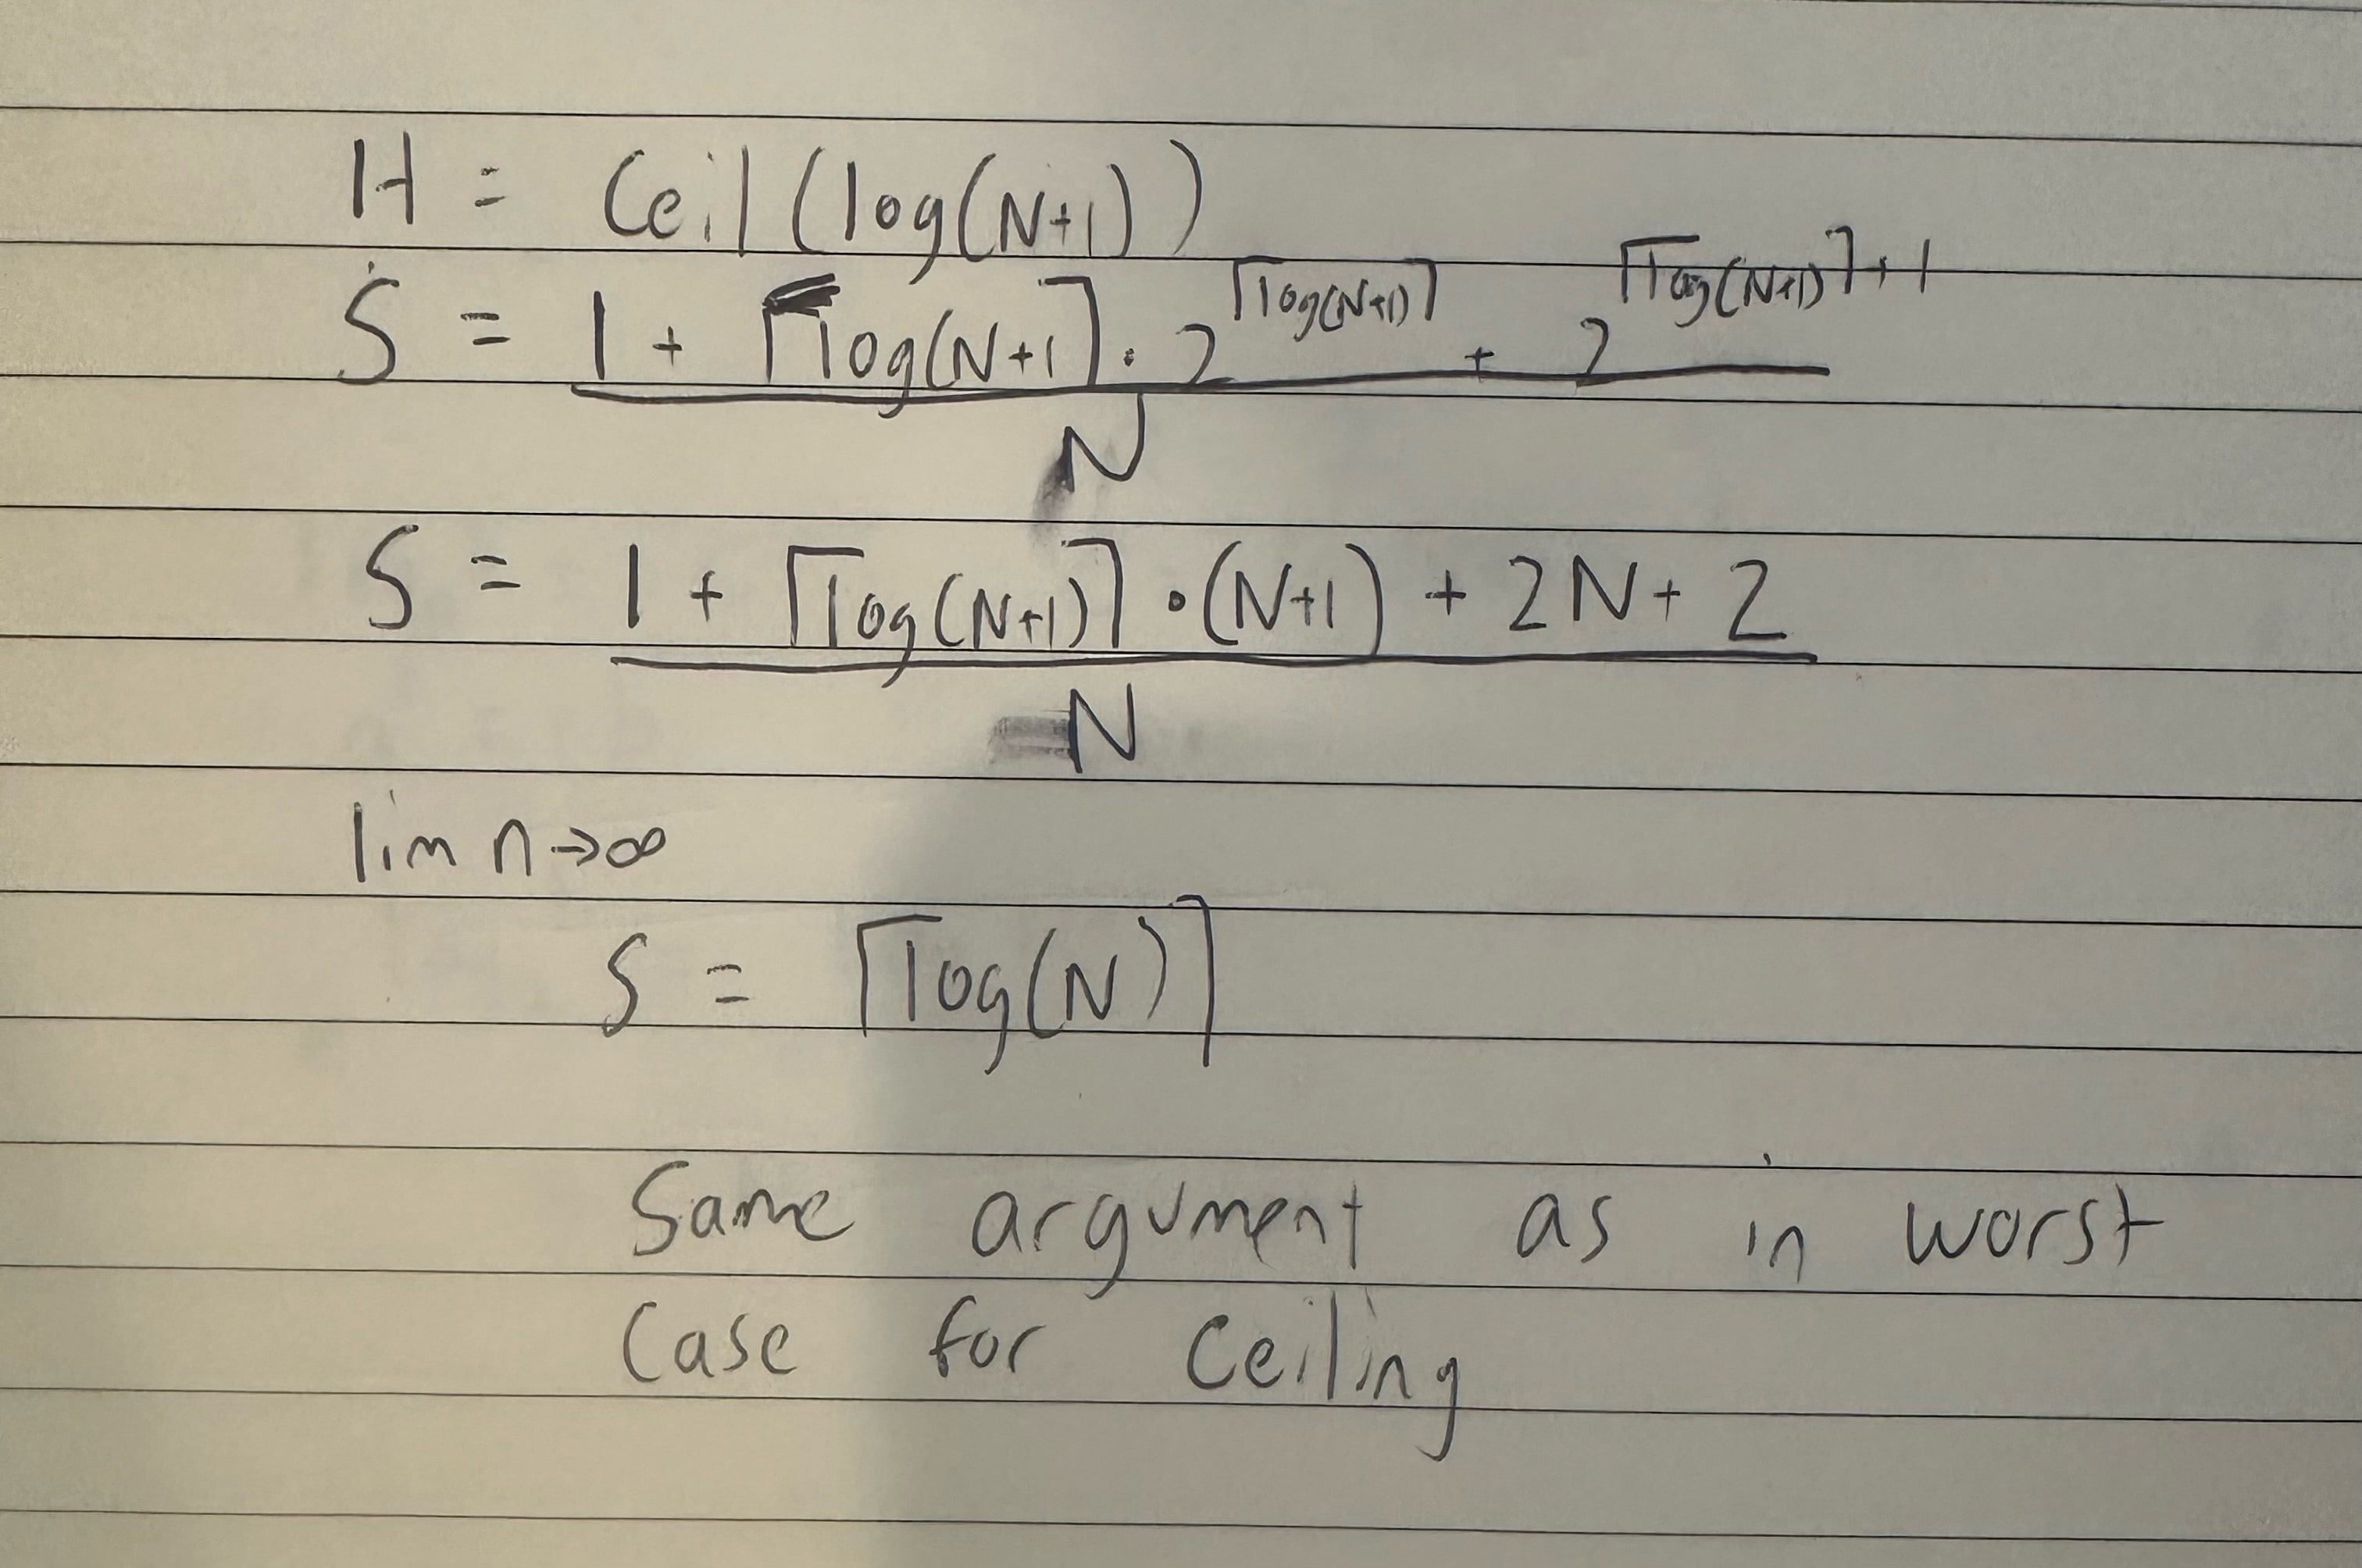 H = Ceil(log(N+1))
S = 1 + ⌈log(N+1⌉ · 2^⌈log(N+1)⌉ + 2^⌈log(N+1)⌉+1
N
S = 1 + ⌈log(N+1)⌉ · (N+1) + 2N + 2
N
lim n→∞
S = ⌈log(N)⌉
Same argument as in worst
Case for Ceiling